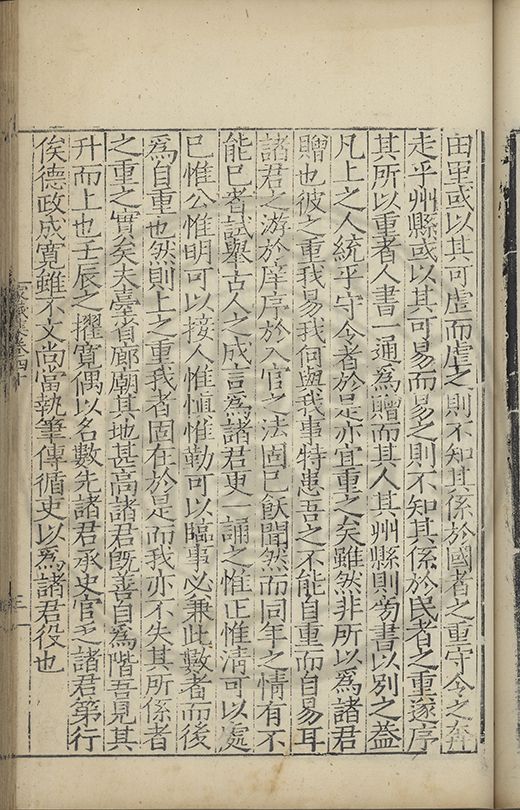 田單或以其可虐而虐之則不知其係於國者之重守令之奔
走乎州縣或以其可易而易之則不知其係於民者之重遂序
其所以重者人書一通爲贈而其人其州縣則旁書以别之蓋
凡上之人統乎守令者於是亦宜重之矣雖然非所以爲諸君
贈也彼之重我易我何與我事特患吾之不能自重而自易耳
諸君之游於庠序於入官之法固已飫聞然而同年之情有不
能已者試舉古人之成言爲諸君更一誦之惟正惟清可以處
已惟公惟明可以接人惟慎惟勤可以臨事必兼此數者而後
爲自重也然則上之重我者固在於是而我亦不失其所係者
之重之實矣夫臺省廊廟其地甚高諸君旣善自爲階吾見其
升而上也壬辰之擢寬偶以名數先諸君承史官乏諸君第行
俟德政成寬雖不文尚當執筆傳循吏以爲諸君役也
家藏集卷四十